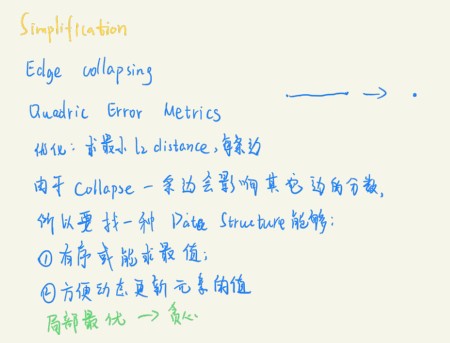 Simplification
Edge collapsing
Quadric Error Metrics
优化：求最小 L2 distance，每条边
由于 Collapse 一条边会影响其它边的分数，
所以要找一种 Data Structure 能够：
①有序或能求最值；
②方便动态更新元素的值
局部最优 → 贪心